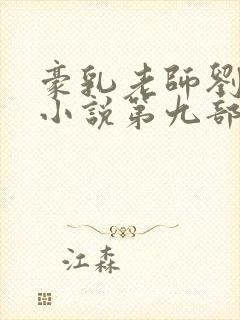 豪乳老師劉
小說第九部
江森